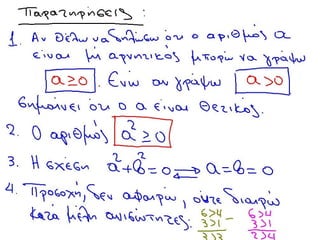 Παρατηρήσεις :
1. Αν θέλω να δηλώσω ότι ο αριθμός α
είναι μη αρνητικός μπορώ να γράψω
α≥0. Ενώ αν γράψω α>0
σημαίνει ότι ο α είναι θετικός.
2. Ο αριθμός α²≥0
3. Η σχέση α²+β²=0 ⇄ α=β=0
4. Προσοχή, δεν αφαιρώ, ούτε διαιρώ
κατά μέλη ανισώτητες. 6>4 - 6>4
3>1 3>1
3>3 2>4